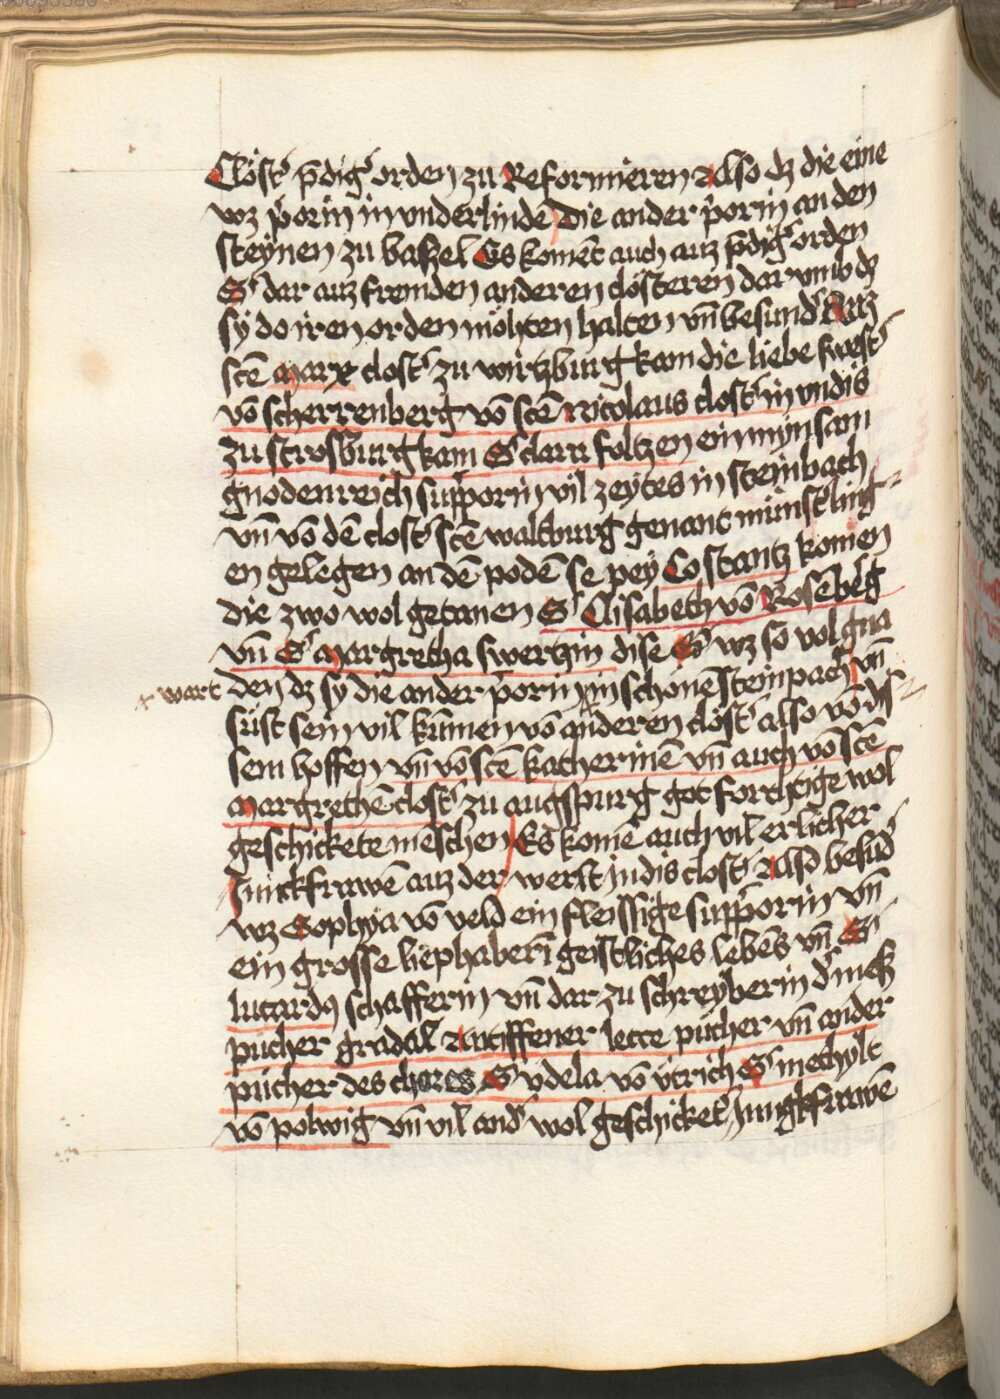 Clöst' p̄dig' orden zu Reformieren Also dz die eine
wz p̓orin in vnderlindē Die ander p̓orin an den
steynen zu baszel Es komēt auch auz p̄dig' orden
S' dar auz fremden anderen clösteren dar vmb dz
sy do iren orden möhten halten vn̄ besund' Auz
scē marx clost' zu wirtzburg kam die liebe swest'
vō scherrenberg vō scē Nicolaus clost' in vndis
zu strosburg kam S' clara foltzen ein mynsam
gnodenreich supp̓orin vil zeytes in steinbach
vn̄ vō dē clost' scē walburg genant münst'ling
en gelegen an dē podē se pey Costantz komen
die zwo wol getanen S' Elisabeth vō Rosēbērg
vn̄ S' margretha swertzin dise S' wz so vol gna
x wart den dz sy die ander p̓orin x in schönē steinpach vn̄
süst sein vil kumen vō anderen clöst' also vō
sem hoffen vn̄ vō scē katherinē vn̄ auch vō scē
margrethē clost' zu augspurg got forchtige wol
geschickete mēschen Es komē auch vil erlicher
Junckfrawē auz der werlt in dis clost' Also besūd'
wz Sophya vō veld ein fleissige supp̓orin vn̄
ein grosse liephaberī geistliches lebēs vn̄ S'
lucardꝯ schafferin vn̄ dar zu schreyberin d'
pücher gradal Antiffener lecte pücher vn̄ ander
pücher des chores S' vdela vō vtrich S' mechylt
vō polwig vn̄ vil and' wol geschicket' Jungkfrawē